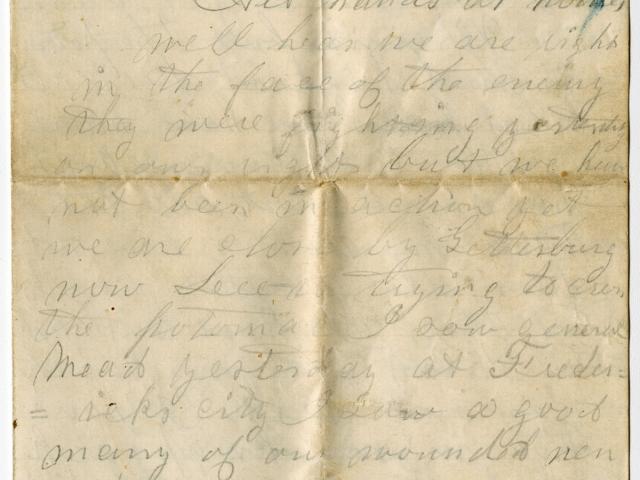 hands at
well hear we are right
in the face of the enemy
they were fighting yesterday
on our right but we have
not been in action yet
we are close by Gettersburg
now Lee is trying to cross
the potomac I saw general
Mead yesterday at Freder=
= icks city I saw a good
many of our wounded men